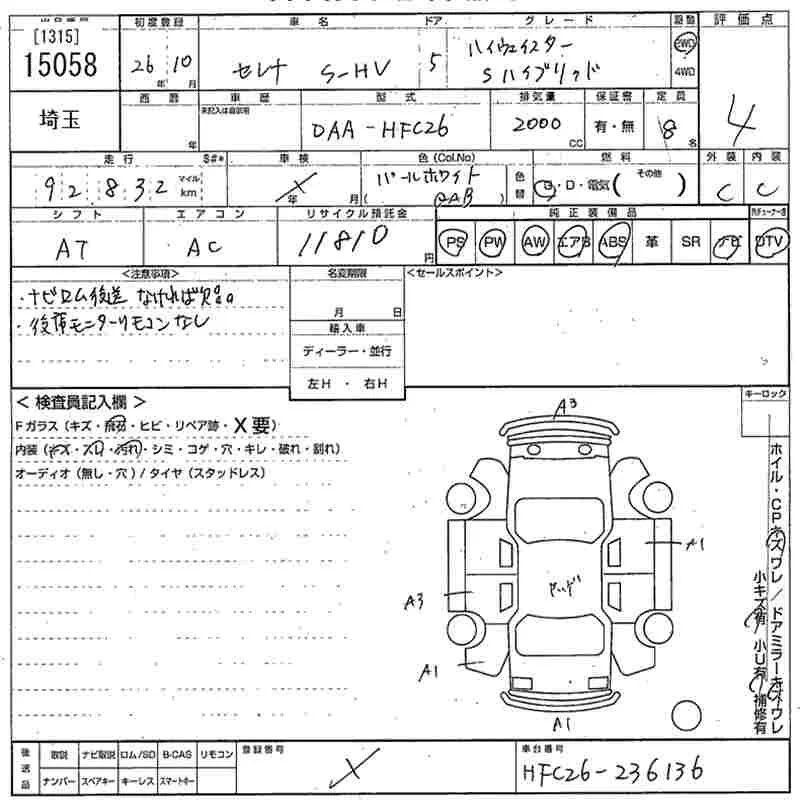 [1315]
15058
初度登録
車名
ドア
グレード
駆動
評価点
26年 10月
セレナ S-HV
5
ハイウェイスター
Sハイブリッド
2WD
4WD
4
埼玉
西暦
年
車歴
未記入は自家用
型式
DAA-HFC26
排気量
2000 CC
保証書
有・無
定員
8名
走行
92,832
マイル
km
S#*
車検
×
年 月
色(Col.No)
パールホワイト
(QAB)
色替
燃料
G・D・電気( その他 )
外装
C
内装
C
シフト
AT
エアコン
AC
リサイクル預託金
11810円
純正装備品
PS PW AW エアB ABS 革 SR ナビ DTV
<注意事項>
・ナビロム後送 なければ欠品
・後席モニターリモコンなし
名変期限
月 日
輸入車
ディーラー・並行
左H ・ 右H
<セールスポイント>
<検査員記入欄>
Fガラス(キズ・飛石・ヒビ・リペア跡・X要)
内装(キズ・スレ・汚れ・シミ・コゲ・穴・キレ・破れ・割れ)
オーディオ(無し・穴)/タイヤ(スタッドレス)
キーロック
A3
A1
A3
A1
A1
ホイル・CPキズワレ/ドアミラーキズワレ
小キズ有 小U有 補修有
後送品
取説 ナビ取説 ロム/SD B-CAS リモコン
ナンバー スペアキー キーレス スマートキー
登録番号
×
車台番号
HFC26-236136